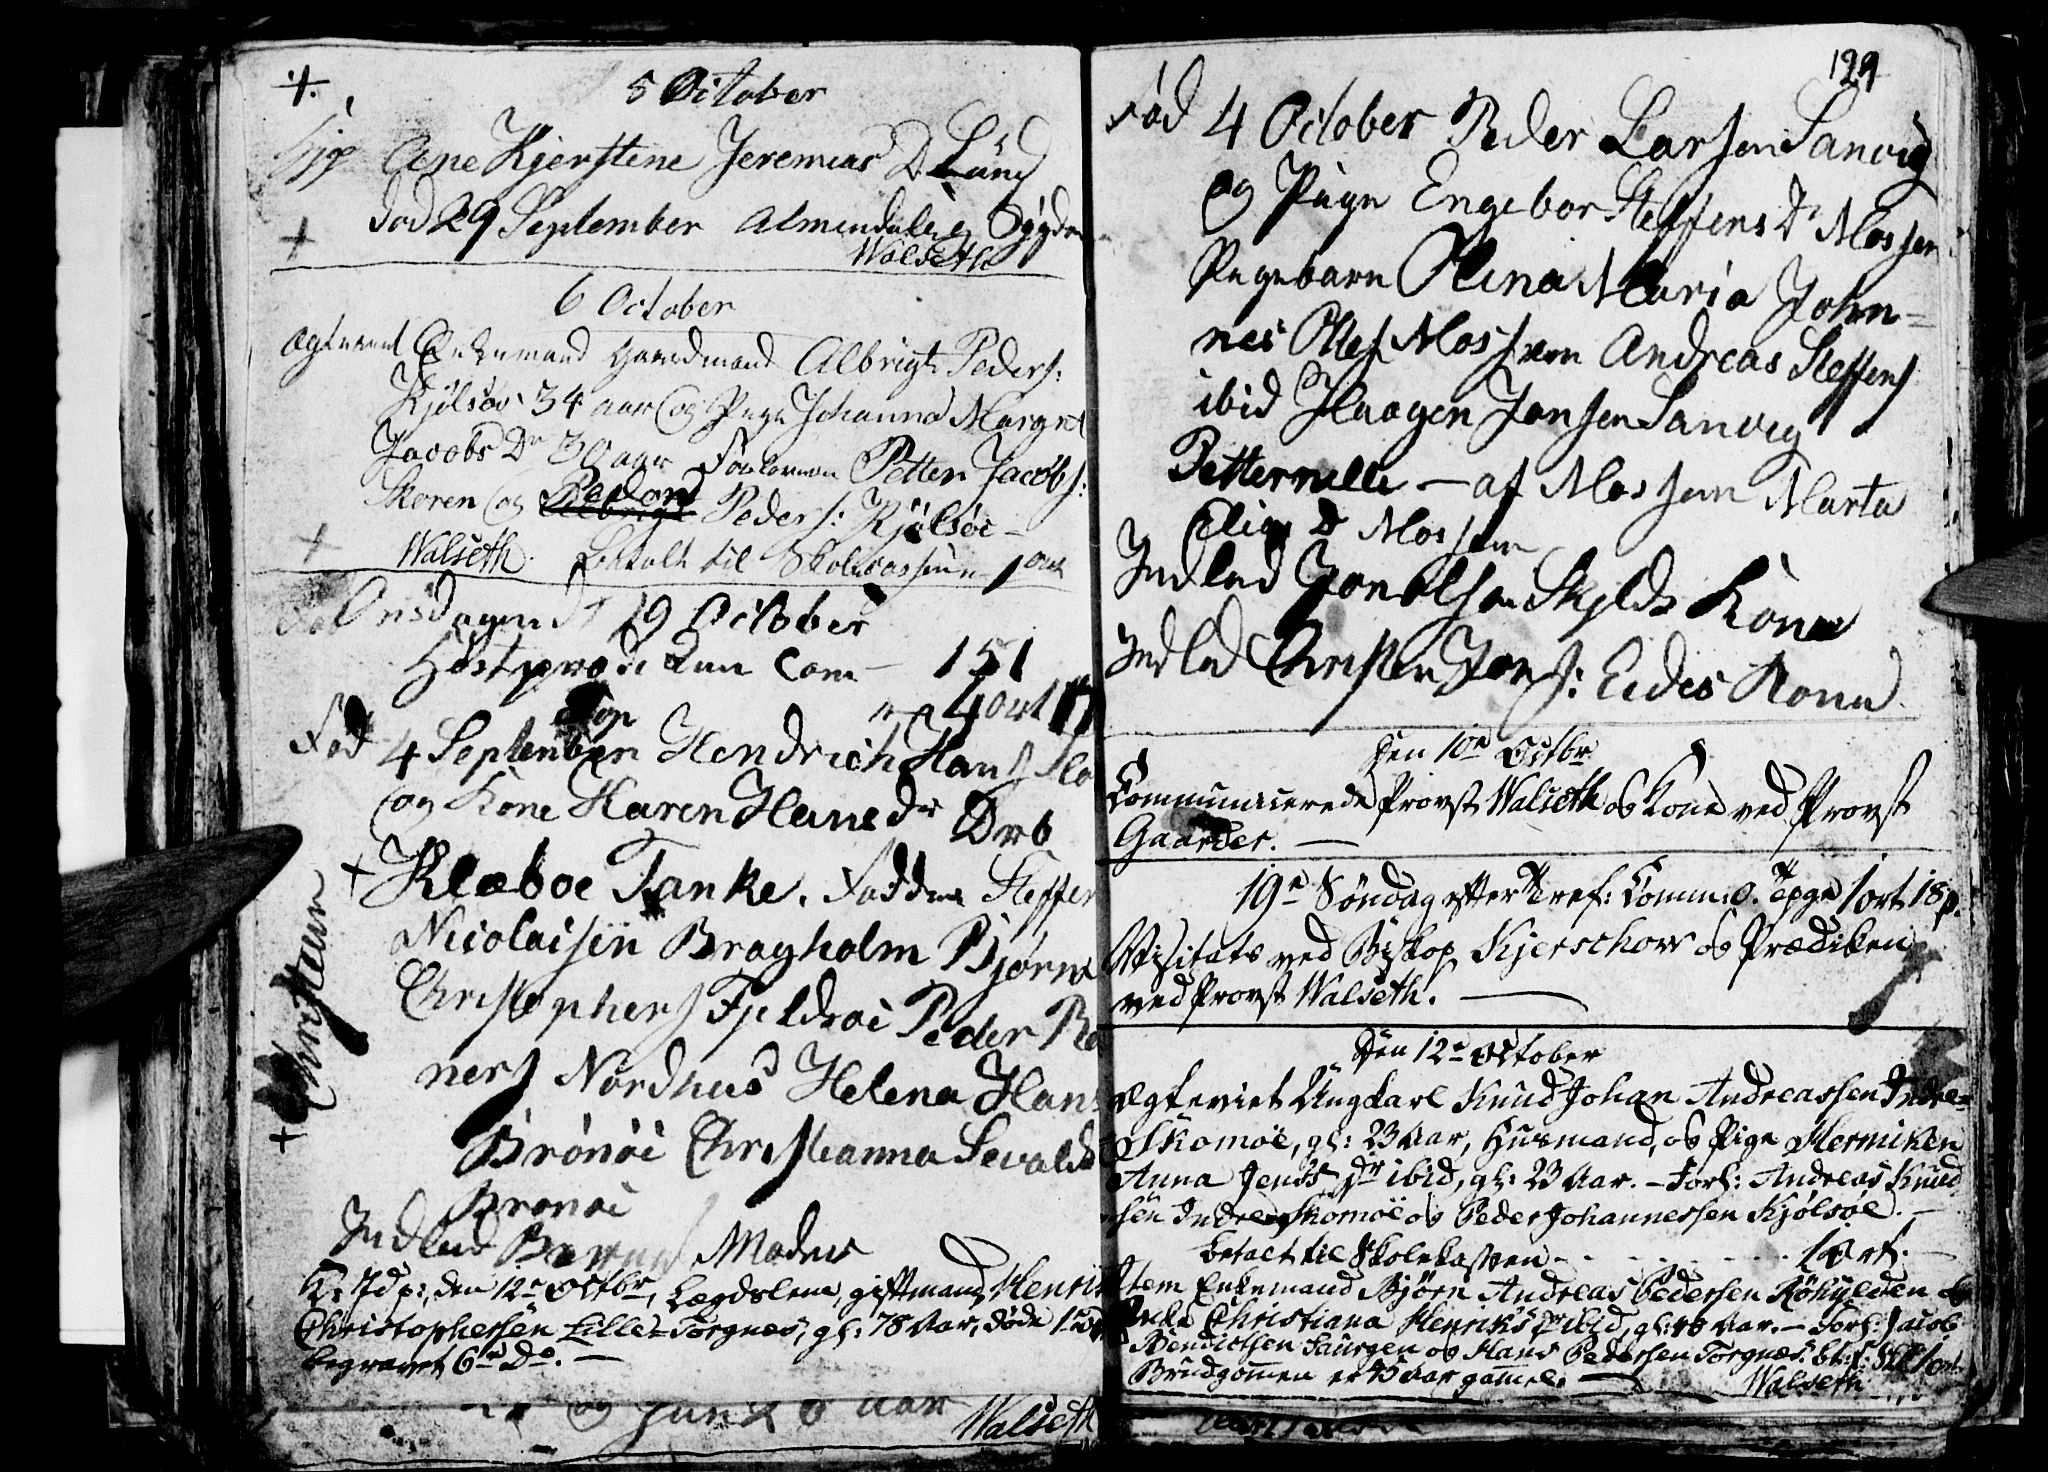 5 October
Hjp Ane Kjerstene Jeremias D Lund
død 29 September Almendelig Sygdom
Walseth
6 October
Ægteviet Enkemand Gaardmand Albrigt Peders:
Kjølsøe 34 aar og Pige Johanna Margret
Jacobs Dr 30 aar Forlovere Petter Jacobs:
Skoren og Peder Peders: Kjølsøe
Walseth. betalt til Skolecassen 1 ort
Onsdagen d 9 October
Høstprædiken Com — 151
4 ort
Fød 4 September Hendrich Hans
og Kone Karen Hans dr Drb
Klæboe Tanke. Faddere Steffen
Nicolaisen Bragholm Bjørn
Christophers Fjeldsøe Peder
ners Nordhus Helena Hans
Brønøe Christianna Sevalds
Brønøe
Indled Barnets Moder
Christian
K: Jdp:, den 12te Octbr, Lægdslem, giftmand Henrik
Christophersen Lille-Torgnæs, gl: 78 Aar, døde 1ste
begravet 6te Do. —
og Aar
Walseth
129
Fød 4 October Peder Larsen Sanvig
og Pige Engebor Steffens Dr Mossem
Pigebarn Olina Maria John=
nes Oles Mossem Andreas Steffens
ibid Haagen Jansen Sanvig
Petternelle — af Mossem Marta
Elias D Mossem
Indled Jon Olsen Skjelds Kone
Indled Christen Jons: Eides Kone
Den 10de Octbr
Communicerede Provst Walseth og Kone ved Provst
Gaarder. —
19de Søndag efter Tref: Comm: O. Tpge 1 ort 18 p.
Visitats ved Biskop Kjerschow og Prædiken
ved Provst Walseth. —
Den 12te October
Ægteviet Ungkarl Knud Johan Andreassen Indre-
Skomøe, gl: 23 Aar, Husmand, og Pige Hermiken
Anna Jens's Dr ibid, gl: 23 Aar. — Forl: Andreas Knud-
sen Indre Skomøe og Peder Johannessen Kjølsøe. —
betalt til Skolekassen - - - 1 Ort. —
Item Enkemand Bjørn Andreas Pedersen Röhylden og
Enke Christiana Henriks Dr ibid, gl: 48 Aar. — Forl: Jacob
Bendictsen Saurgen og Hans Pedersen Torgnæs. bt: t: Sk: 1 ort
Brudgommen er 45 Aar gammel. — Walseth